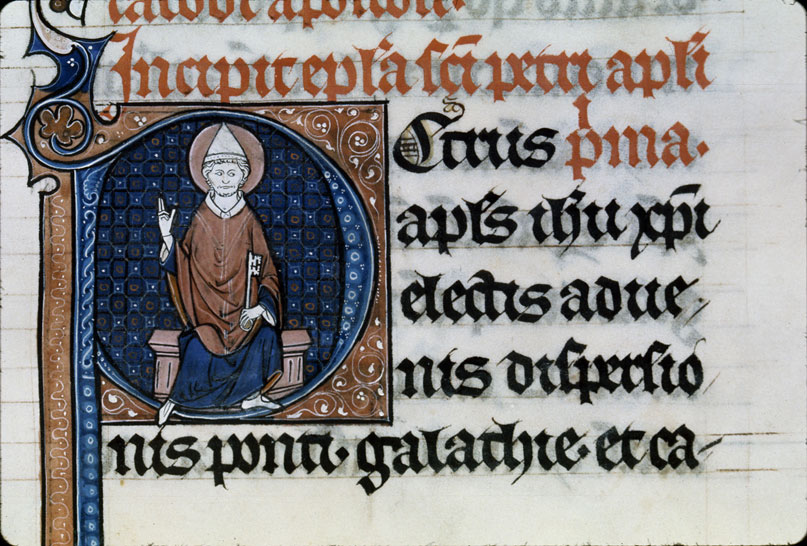 Incipit epl̃a sc̃i petri apl̃i
Petrus p̾ma.
apl̃s ih̃u xp̃i
electis adue
nis dispersio
nis ponti. galathie. et ca-